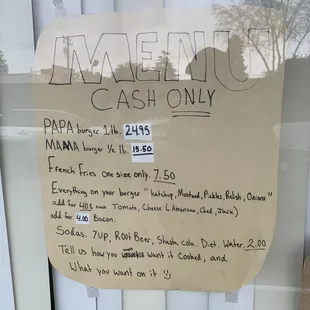 MENU
CASH ONLY
PAPA burger 1 lb. 24.95
MAMA burger 1/2 lb. 15.50
French Fries one size only. 7.50
Everything on your burger "Ketchup, Mustard, Pickles, Relish, Onions"
add for 40¢ each Tomato, Cheese (American, Ched, Jack)
add for 4.00 Bacon.
Sodas. 7up, Root Beer, Shasta cola. Diet. Water. 2.00
Tell us how you want it cooked, and
What you want on it